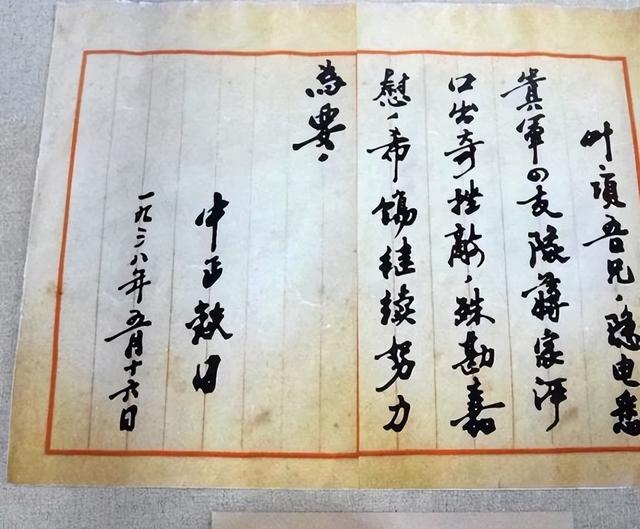 叶項吾兄、隐电悉
貴軍四支隊蒋家河
口出奇挫敵、殊勘嘉
慰、希飭继续努力
為要、
中正日
一九三八年五月十六日